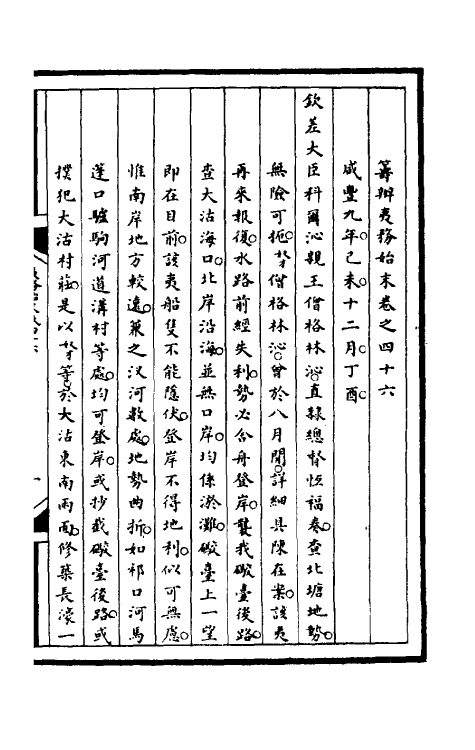 籌辦夷務始末卷之四十六
咸豐九年己未十二月丁酉
欽差大臣科爾沁親王僧格林沁直隸總督恆福奏查北塘地勢
無險可扼奴才僧格林沁曾於八月間詳細具陳在案該夷
再來報復水路前經失利勢必合舟登岸襲我礮臺後路
查大沽海口北岸沿海並無口岸均係淤灘礮臺上一望
即在目前該夷船隻不能隱伏登岸不得地利似可無慮
惟南岸地方較遠兼之汊河數處地勢曲折如祁口河馬
蓬口驢駒河道溝村等處均可登岸或抄截礮臺後路或
撲犯大沽村莊是以奴才等於大沽東南兩面修築長濠一